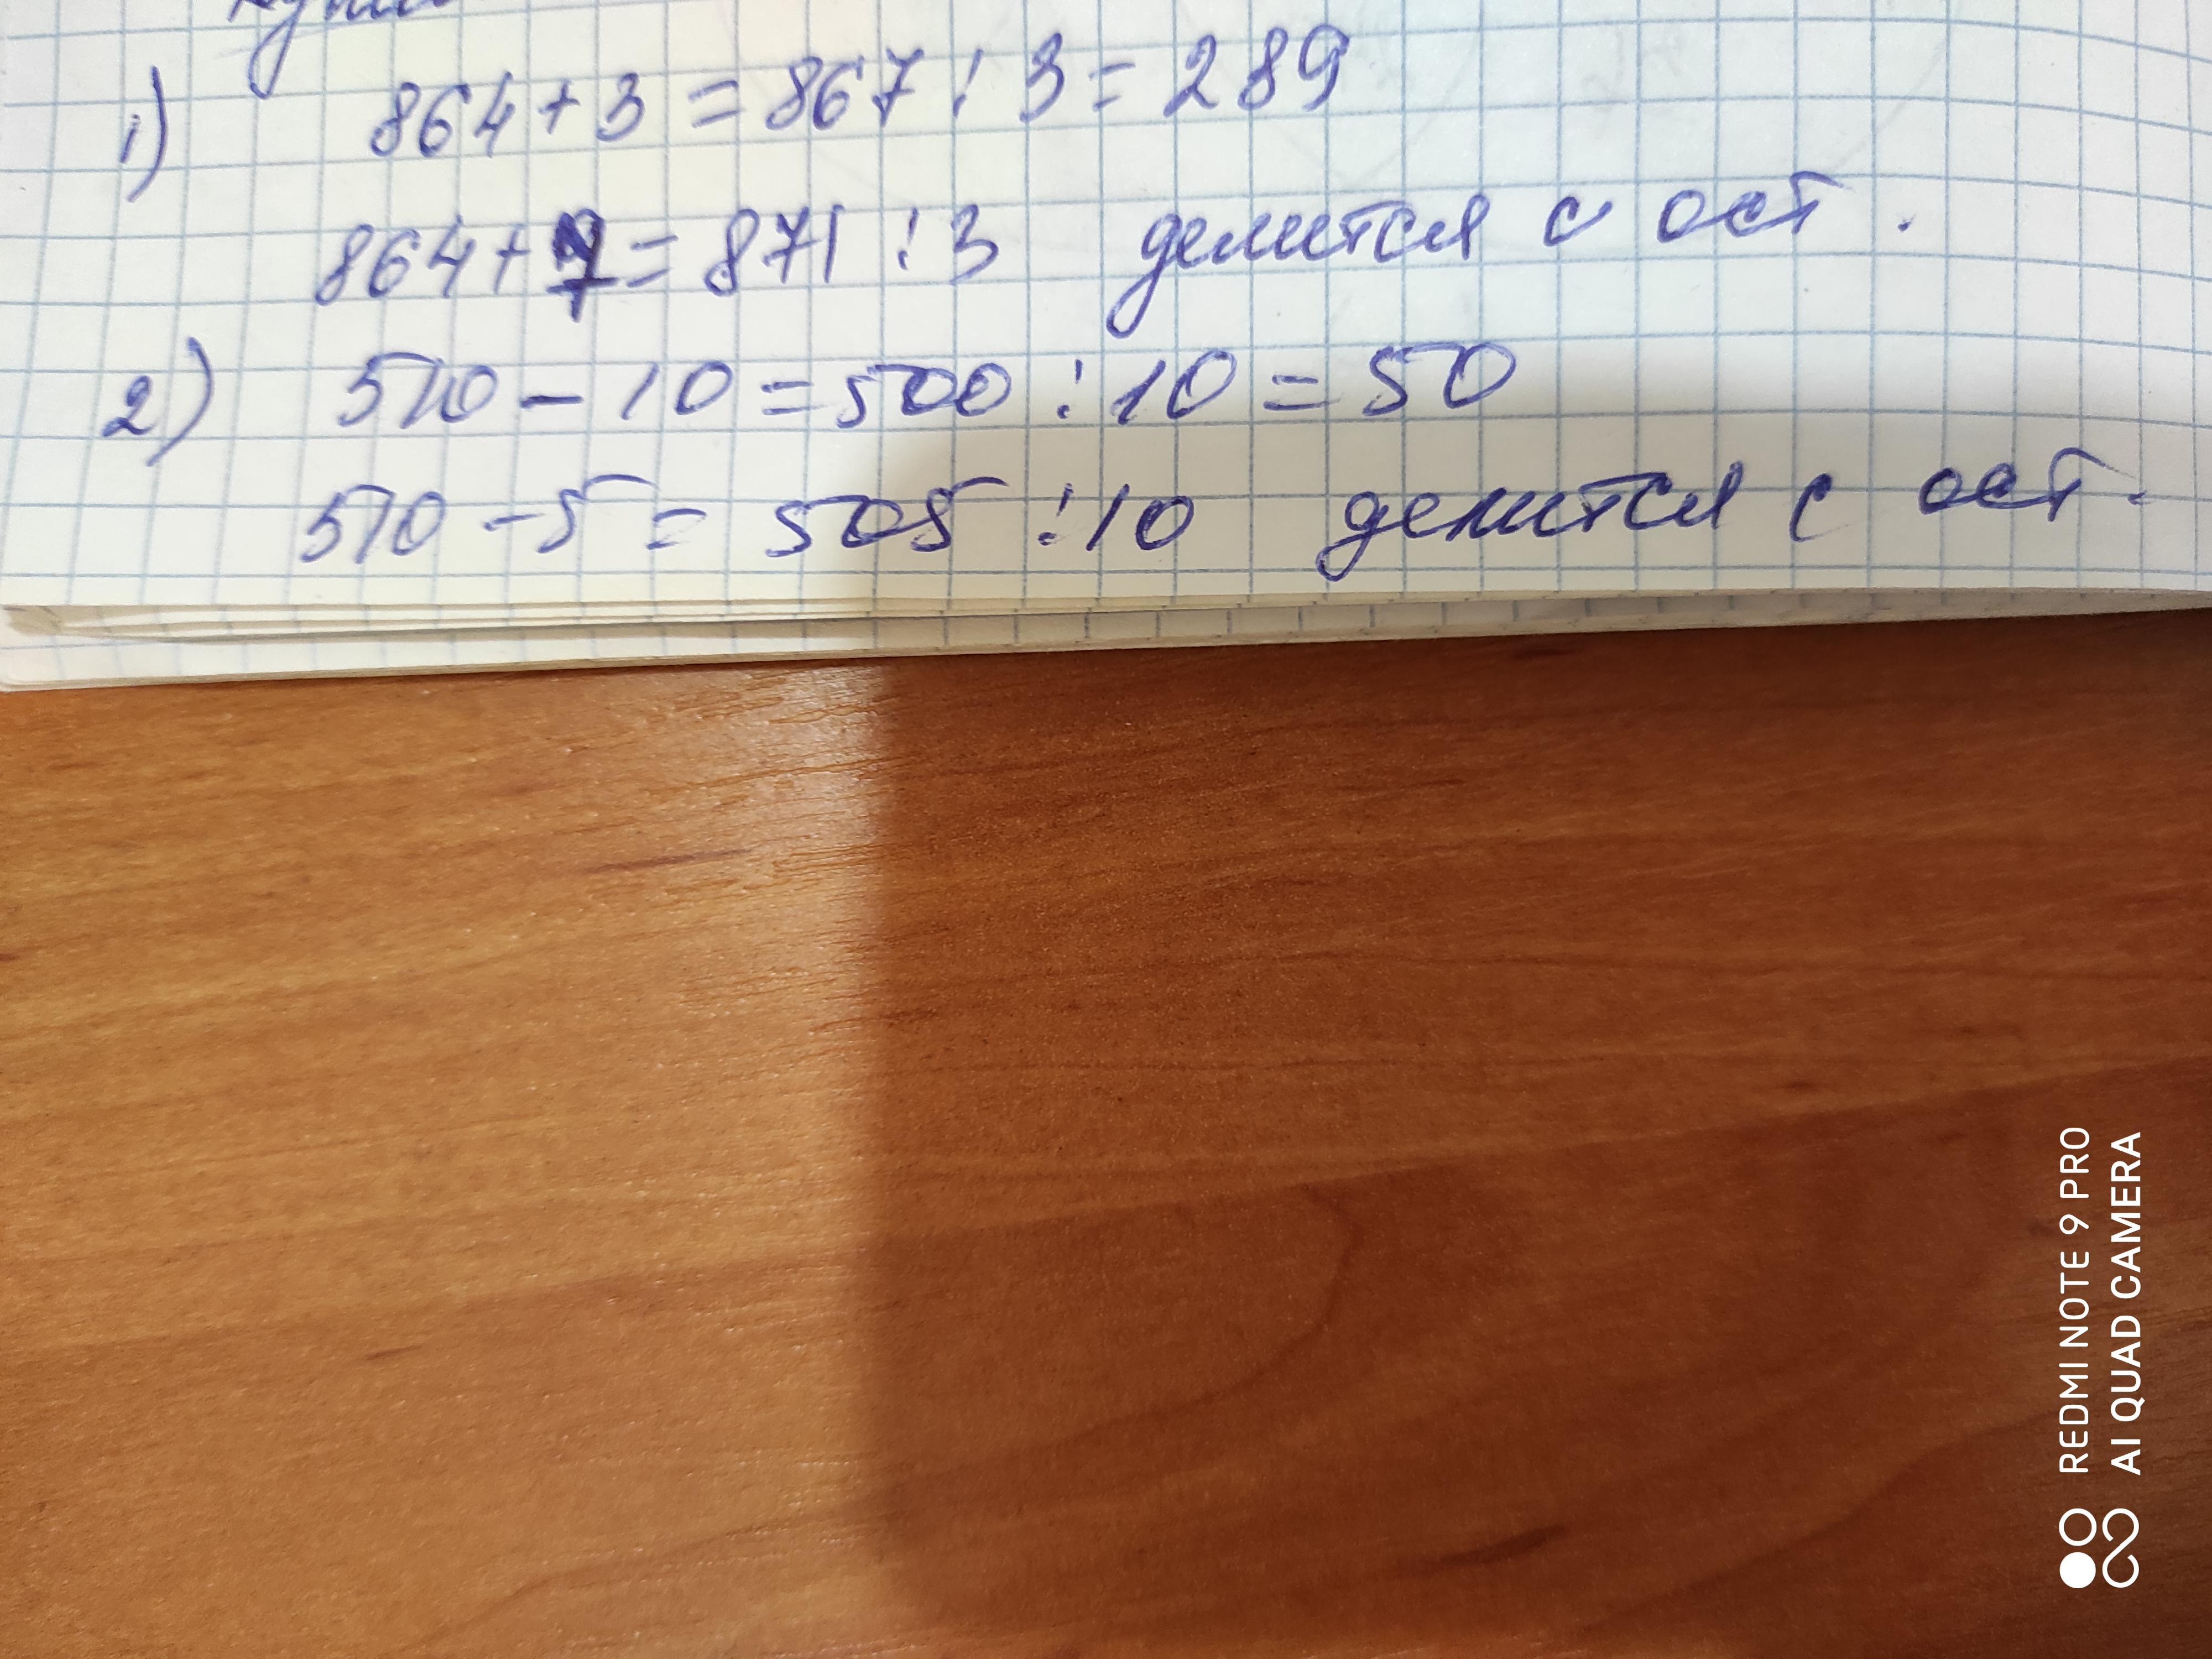 1) 864 + 3 = 867 : 3 = 289
864 + 7 = 871 : 3 делится с ост.
2) 510 - 10 = 500 : 10 = 50
510 - 5 = 505 : 10 делится с ост.
REDMI NOTE 9 PRO
AI QUAD CAMERA